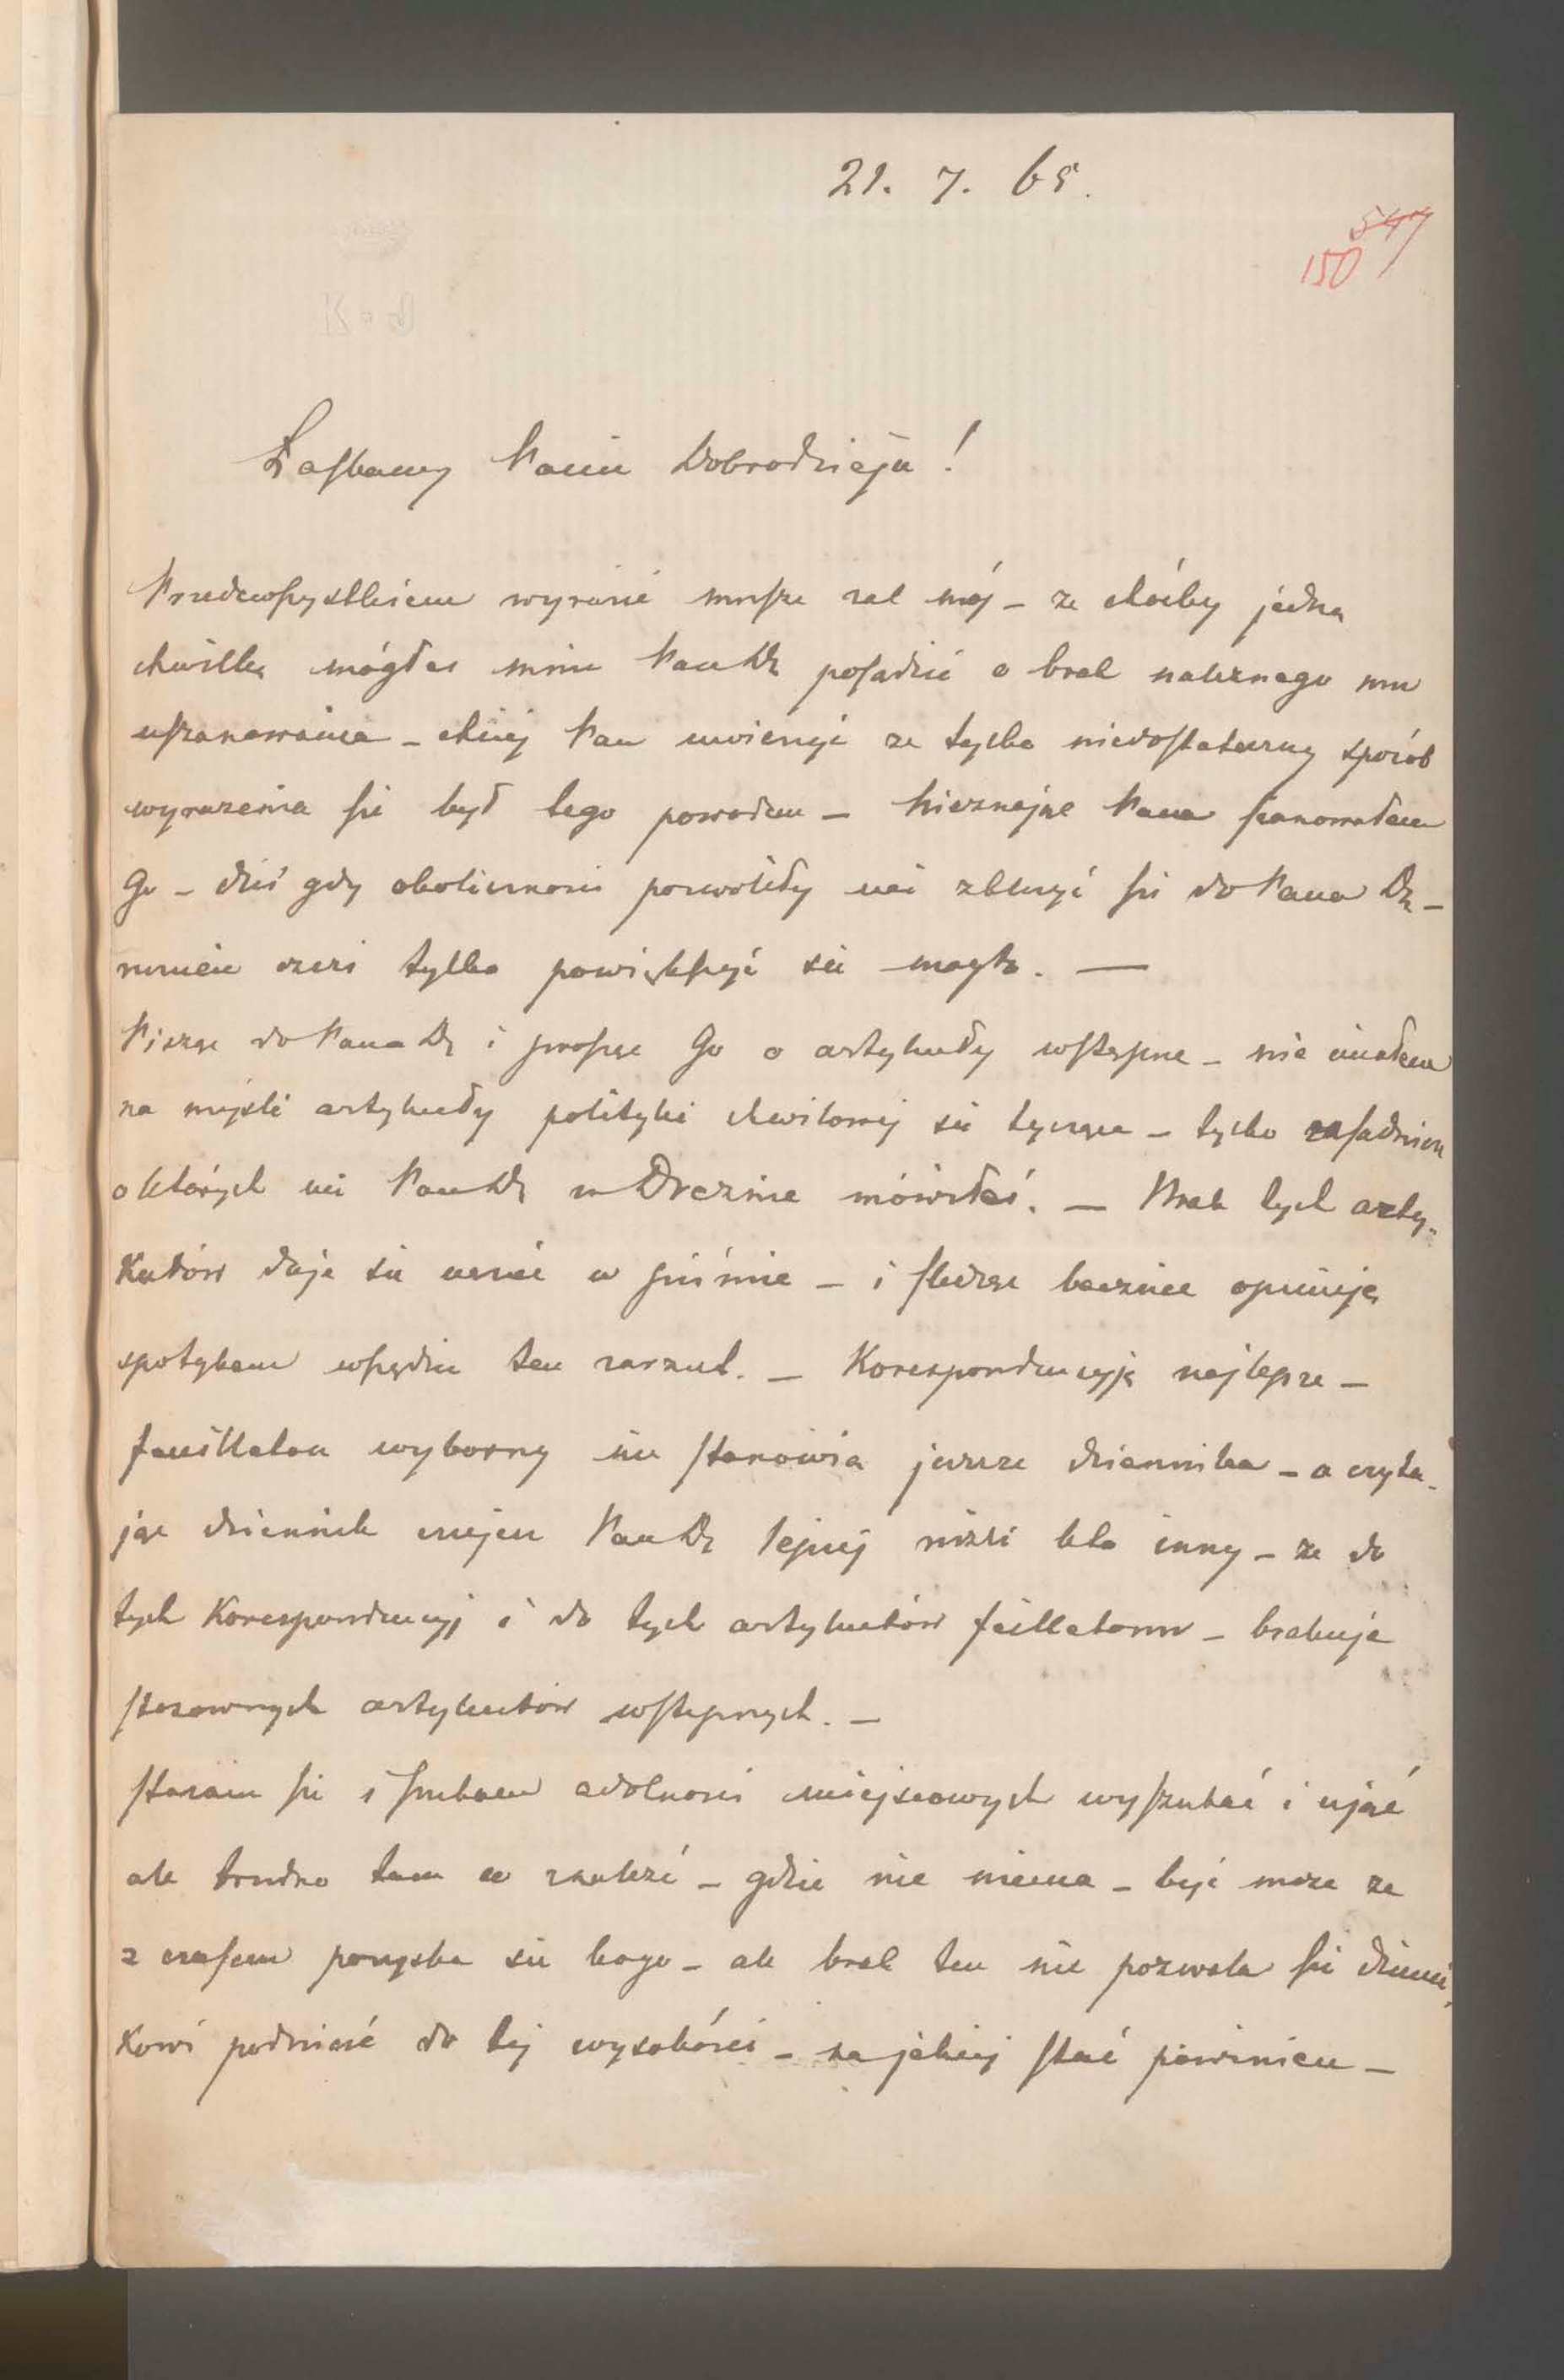 21. 7. 65.
547
150
Łaskawy Panie Dobrodzieju!
Przedewszystkiem wyrazić muszę zal mój – ze chóćby jedną
chwilkę mógłes mnie Pan Dz posadzić o brak naleznego mu
uszanowania – chciej Pan uwierzyć ze tylko niedostateczny sposób
wyrazenia się był tego powodem – Nieznając Pana szanowałem
Go – dziś gdy okoliczności pozwoliły mi zblizyć się do Pana Dz –
uczucie czci tylko powiększyć się mogło. —
Pisząc do Pana Dz i prosząc Go o artykuły wstępne – nie miałem
na mysli artykuły polityki chwilowej się tyczące – tylko zasadnicze
o których mi Pan Dz w Dreznie mówiłeś. — Brak tych arty-
kułów daje się czuć w piśmie – i sledząc bacznie opiniję
spotykam wszędzie ten zarzut. — Korespondencyje najlepsze –
feuilleton wyborny nie stanowią jeszcze dziennika – a czyta-
jąc dziennik czujesz Pan Dz lepiej nizli kto inny – ze do
tych Korespondencyj i do tych artykułów feilletonu – brakuje
stosownych artykułów wstępnych. –
Staram się i szukam zdolności miejscowych wyszukać i ująć
ale trudno tam co znaleźć – gdzie nic niema – być moze ze
z czasem pozyska się kogo – ale brak ten nie pozwala się dzienni-
kowi podnieść do tej wysokósci – na jakiej stać powinien –